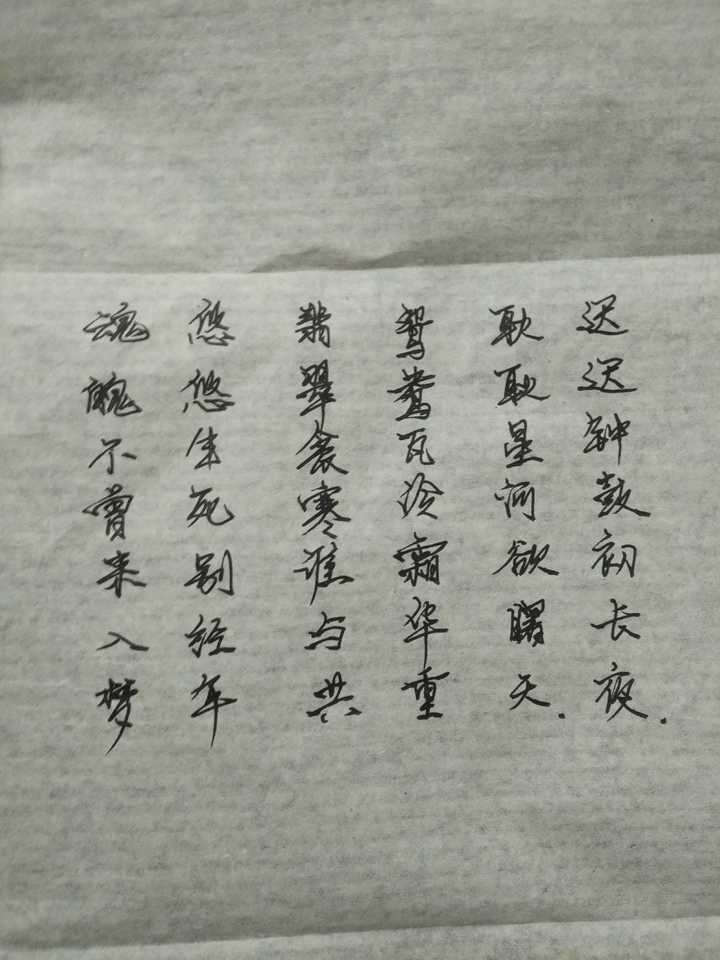 迟迟钟鼓初长夜.
耿耿星河欲曙天.
鸳鸯瓦冷霜华重
翡翠衾寒谁与共
悠悠生死别经年
魂魄不曾来入梦